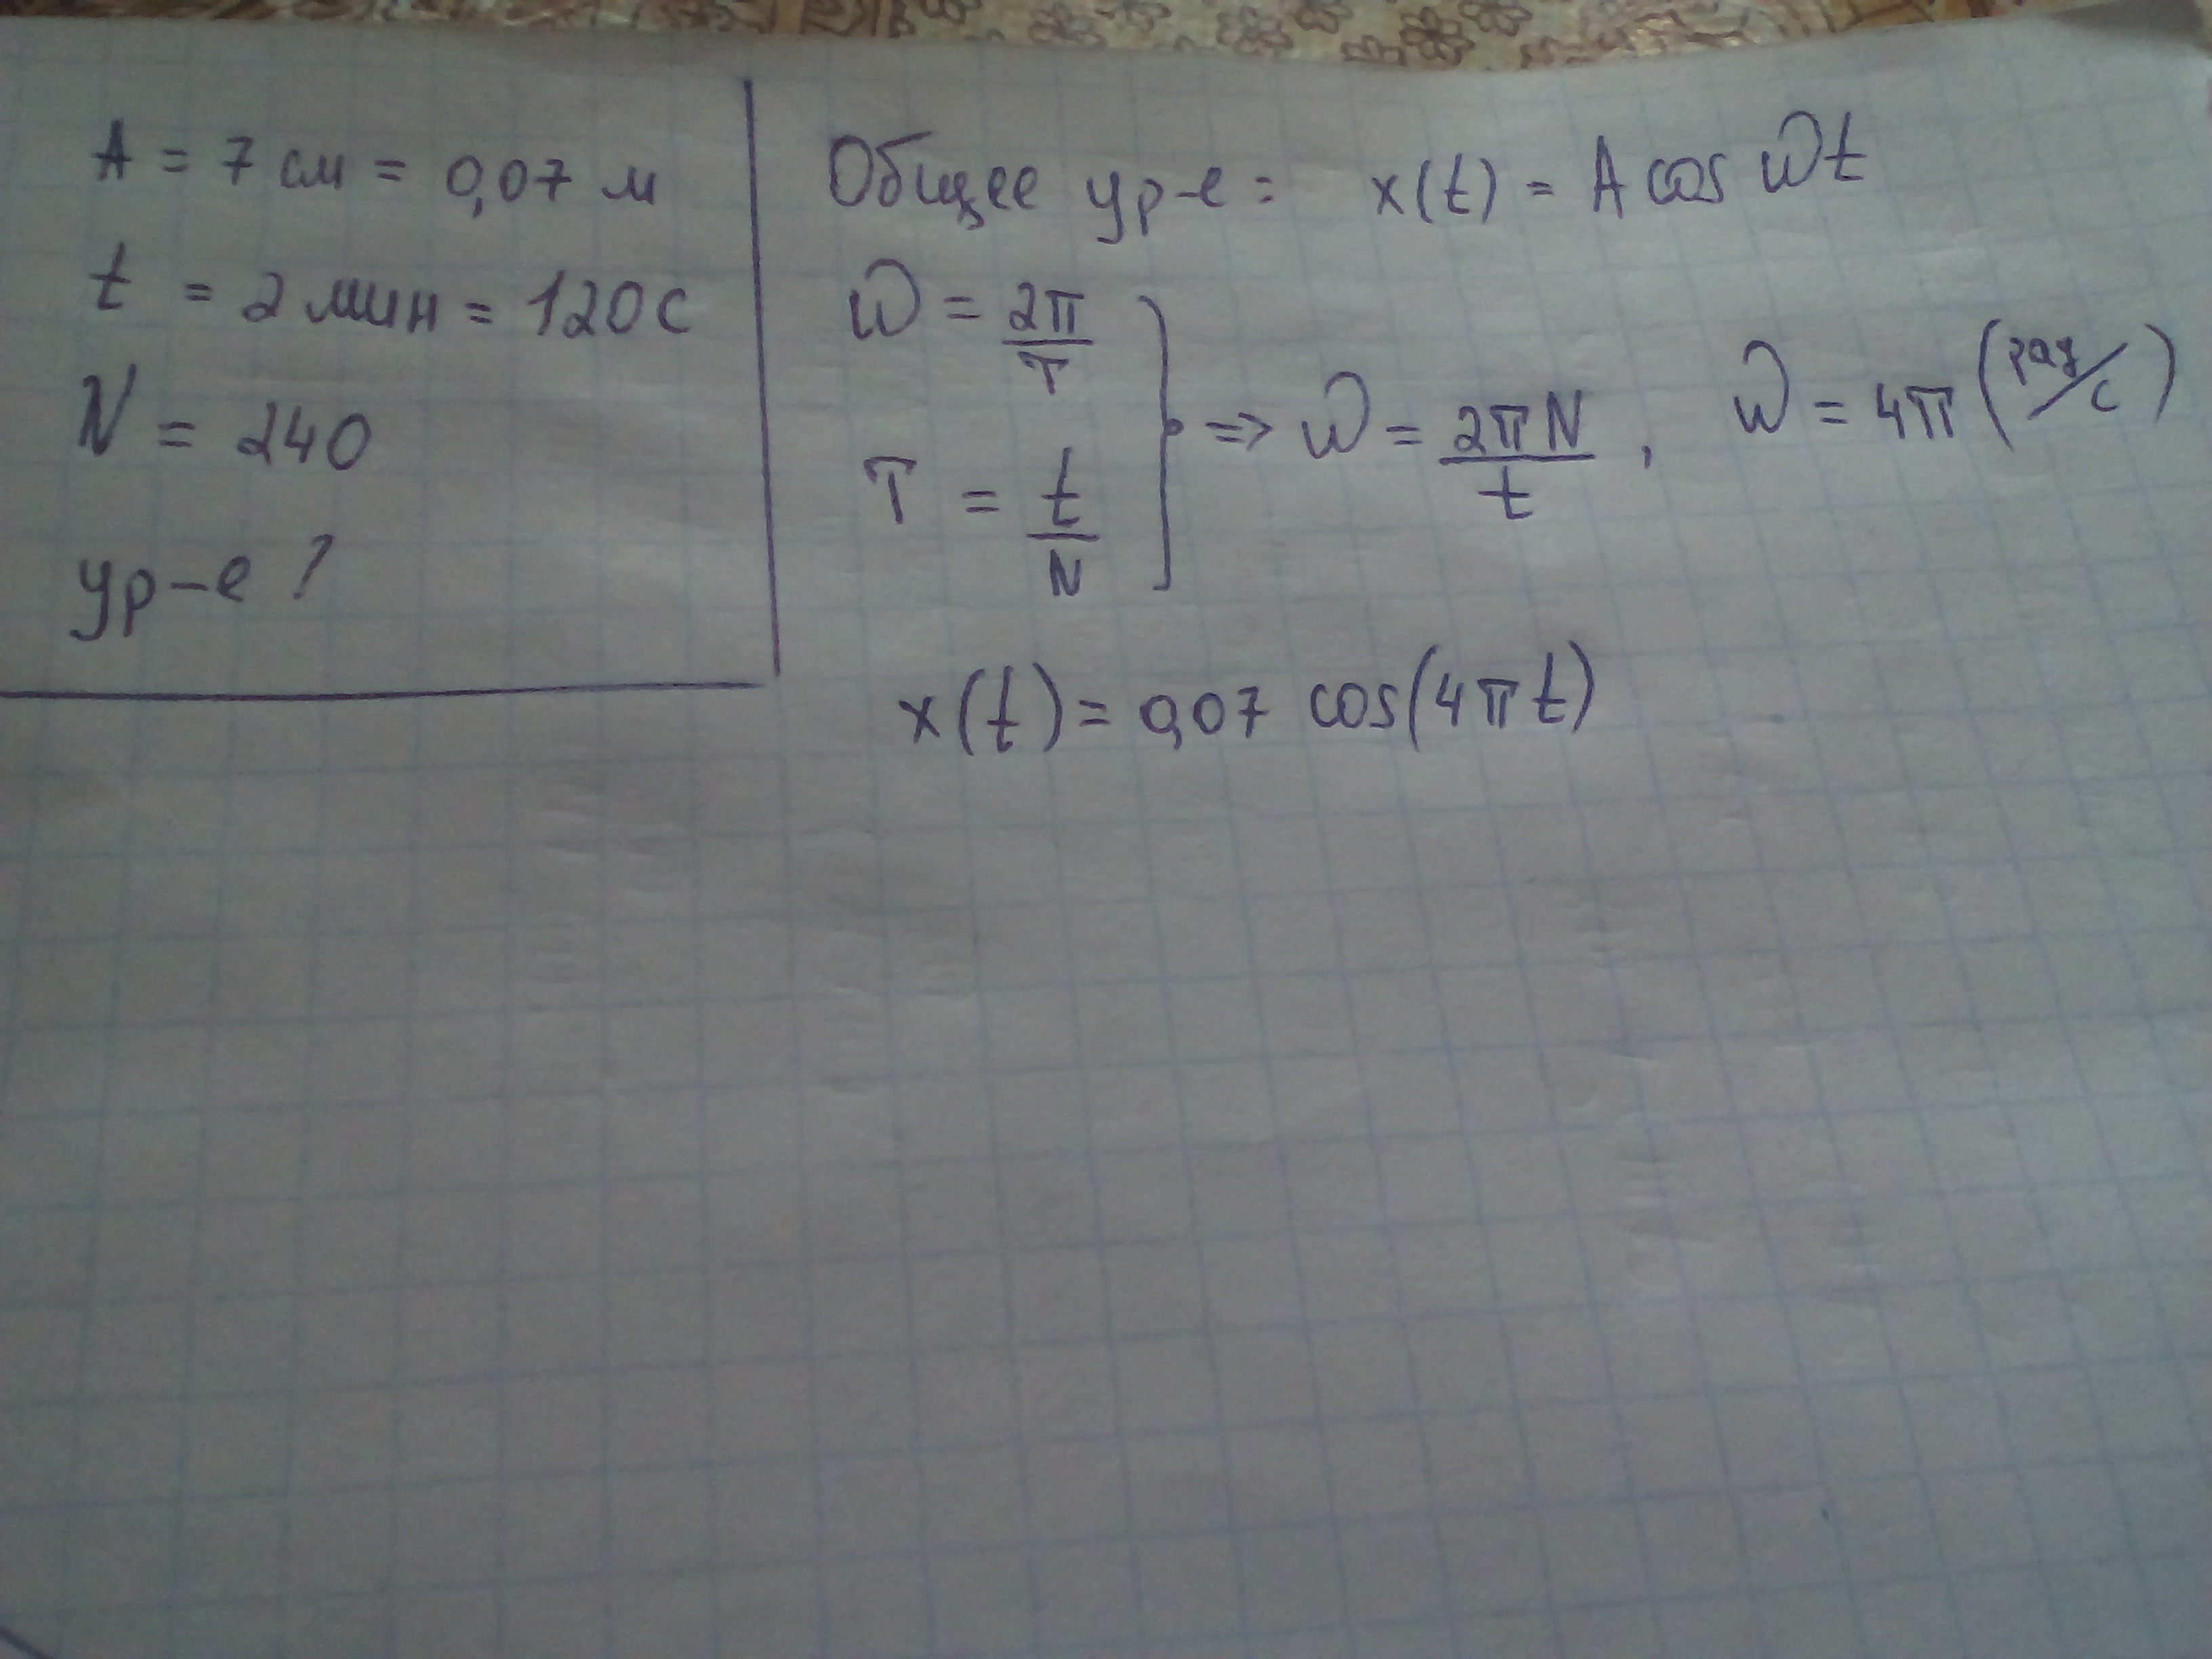 A = 7 см = 0,07 м
t = 2 мин = 120 с
N = 240
ур-е ?
Общее ур-е: x(t) = A cos ωt
ω = 2π/T
T = t/N
⇒ ω = 2πN/t , ω = 4π (рад/с)
x(t) = 0,07 cos(4πt)